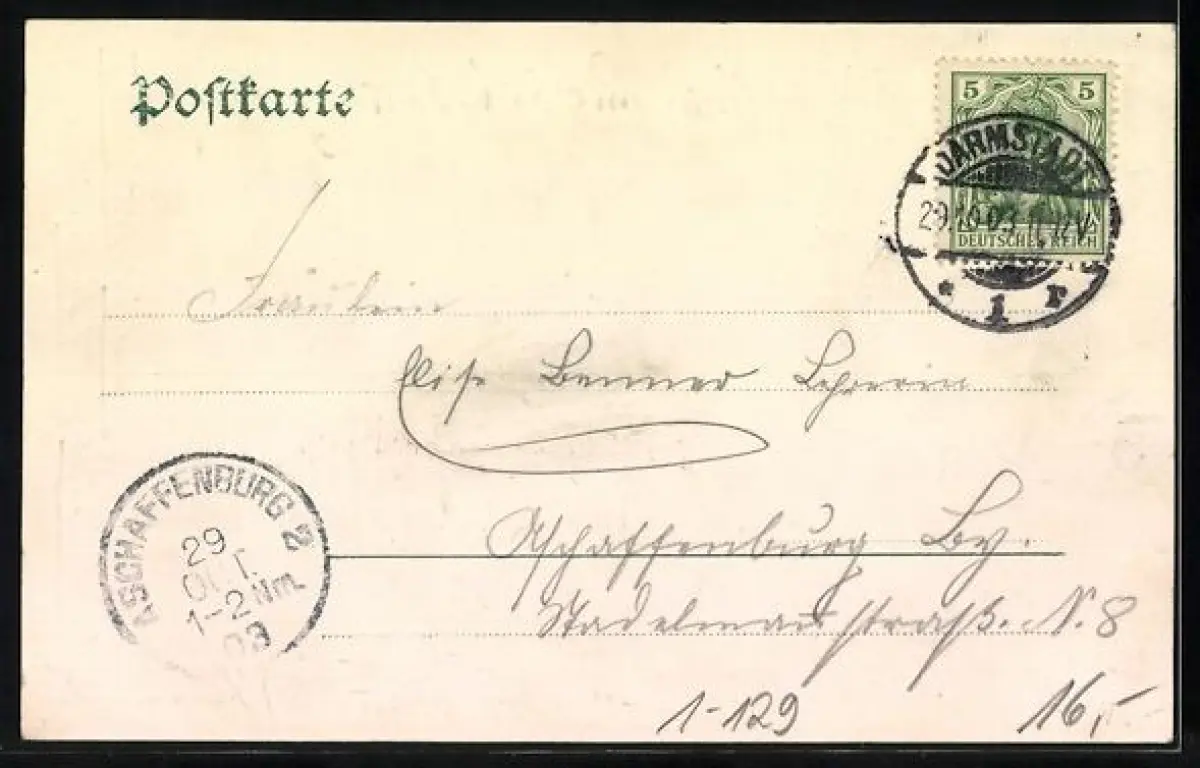 Postkarte
5 5
DARMSTADT
29.10.03. 11-12V.
* 1 r
DEUTSCHES REICH
Fräulein
Elise Benner Lehrerin
Aschaffenburg By.
Stadelmanstraße N. 8
ASCHAFFENBURG 2
29
OCT.
1-2 Nm.
03
1-129
16,-